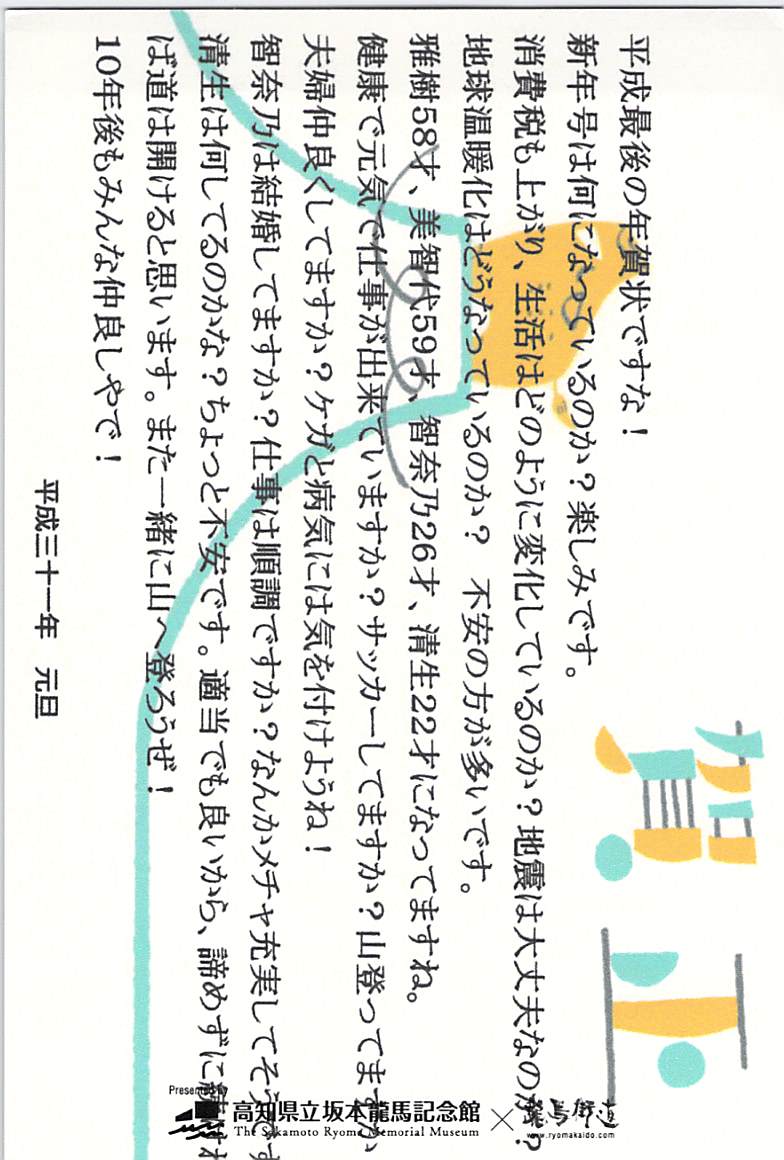 平成最後の年賀状ですな！
新年号は何になっているのか？楽しみです。
消費税も上がり、生活はどのように変化しているのか？地震は大丈夫なのか？
地球温暖化はどうなっているのか？ 不安の方が多いです。
雅樹58才、美智代59才、智奈乃26才、清生22才になってますね。
健康で元気で仕事が出来ていますか？サッカーしてますか？山登ってますか
夫婦仲良くしてますか？ケガと病気には気を付けようね！
智奈乃は結婚してますか？仕事は順調ですか？なんかメチャ充実してそうです
清生は何してるのかな？ちょっと不安です。適当でも良いから、諦めずに
ば道は開けると思います。また一緒に山へ登ろうぜ！
10年後もみんな仲良しやで！
平成三十一年 元旦
Presented by
高知県立坂本龍馬記念館 × 龍馬街道
The Sakamoto Ryoma Memorial Museum
www.ryomakaido.com